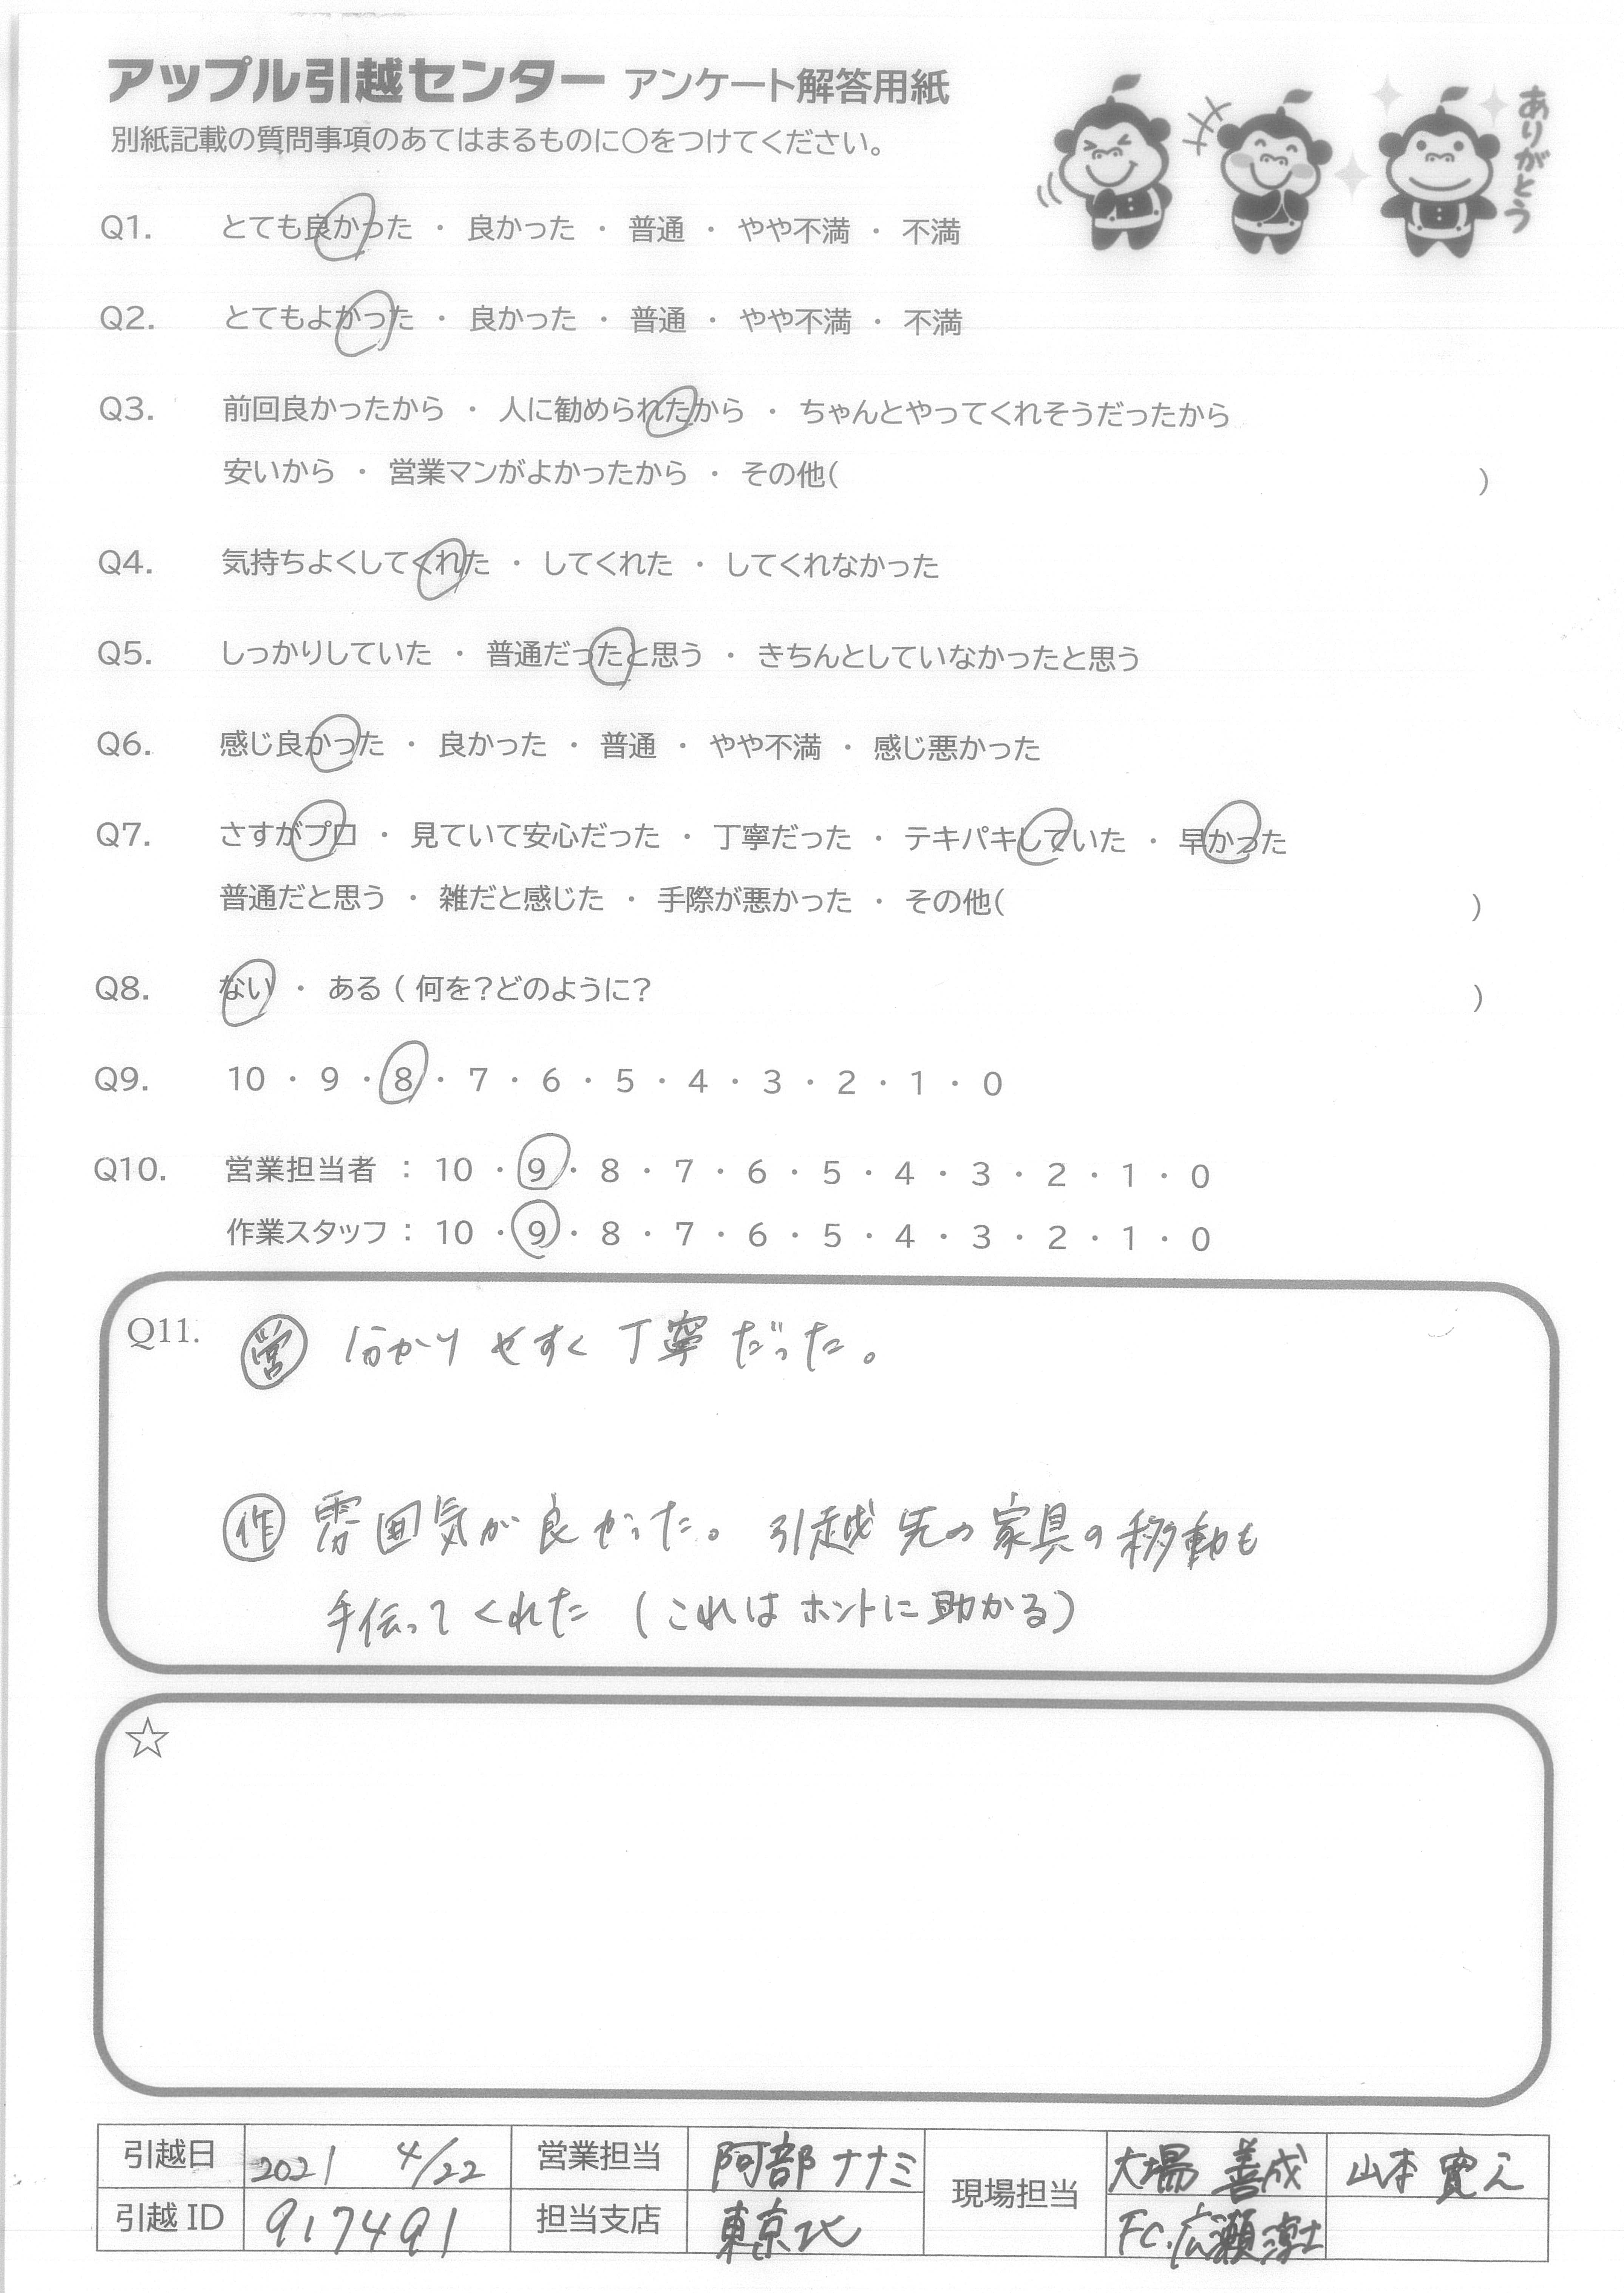 アップル引越センター アンケート解答用紙
別紙記載の質問事項のあてはまるものに○をつけてください。
ありがとう
Q1. とても良かった ・ 良かった ・ 普通 ・ やや不満 ・ 不満
Q2. とてもよかった ・ 良かった ・ 普通 ・ やや不満 ・ 不満
Q3. 前回良かったから ・ 人に勧められたから ・ ちゃんとやってくれそうだったから
安いから ・ 営業マンがよかったから ・ その他( )
Q4. 気持ちよくしてくれた ・ してくれた ・ してくれなかった
Q5. しっかりしていた ・ 普通だったと思う ・ きちんとしていなかったと思う
Q6. 感じ良かった ・ 良かった ・ 普通 ・ やや不満 ・ 感じ悪かった
Q7. さすがプロ ・ 見ていて安心だった ・ 丁寧だった ・ テキパキしていた ・ 早かった
普通だと思う ・ 雑だと感じた ・ 手際が悪かった ・ その他( )
Q8. ない ・ ある ( 何を?どのように? )
Q9. 10 ・ 9 ・ 8 ・ 7 ・ 6 ・ 5 ・ 4 ・ 3 ・ 2 ・ 1 ・ 0
Q10. 営業担当者 : 10 ・ 9 ・ 8 ・ 7 ・ 6 ・ 5 ・ 4 ・ 3 ・ 2 ・ 1 ・ 0
作業スタッフ : 10 ・ 9 ・ 8 ・ 7 ・ 6 ・ 5 ・ 4 ・ 3 ・ 2 ・ 1 ・ 0
Q11. 営 分かりやすく丁寧だった。
作 雰囲気が良かった。引越先の家具の移動も
手伝ってくれた (これはホントに助かる)
☆
引越日 2021 4/22 営業担当 阿部 ナナミ 現場担当 大場 善成 山本
引越ID 917491 担当支店 東京北 FC.広瀬